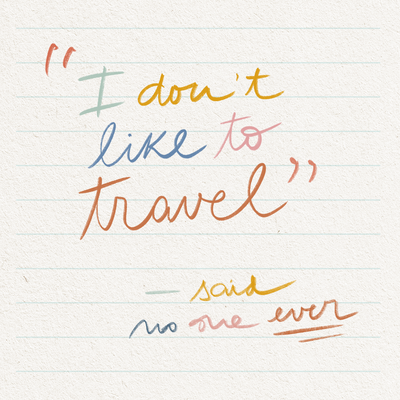 "I don't
like to
travel"
— said
no one ever